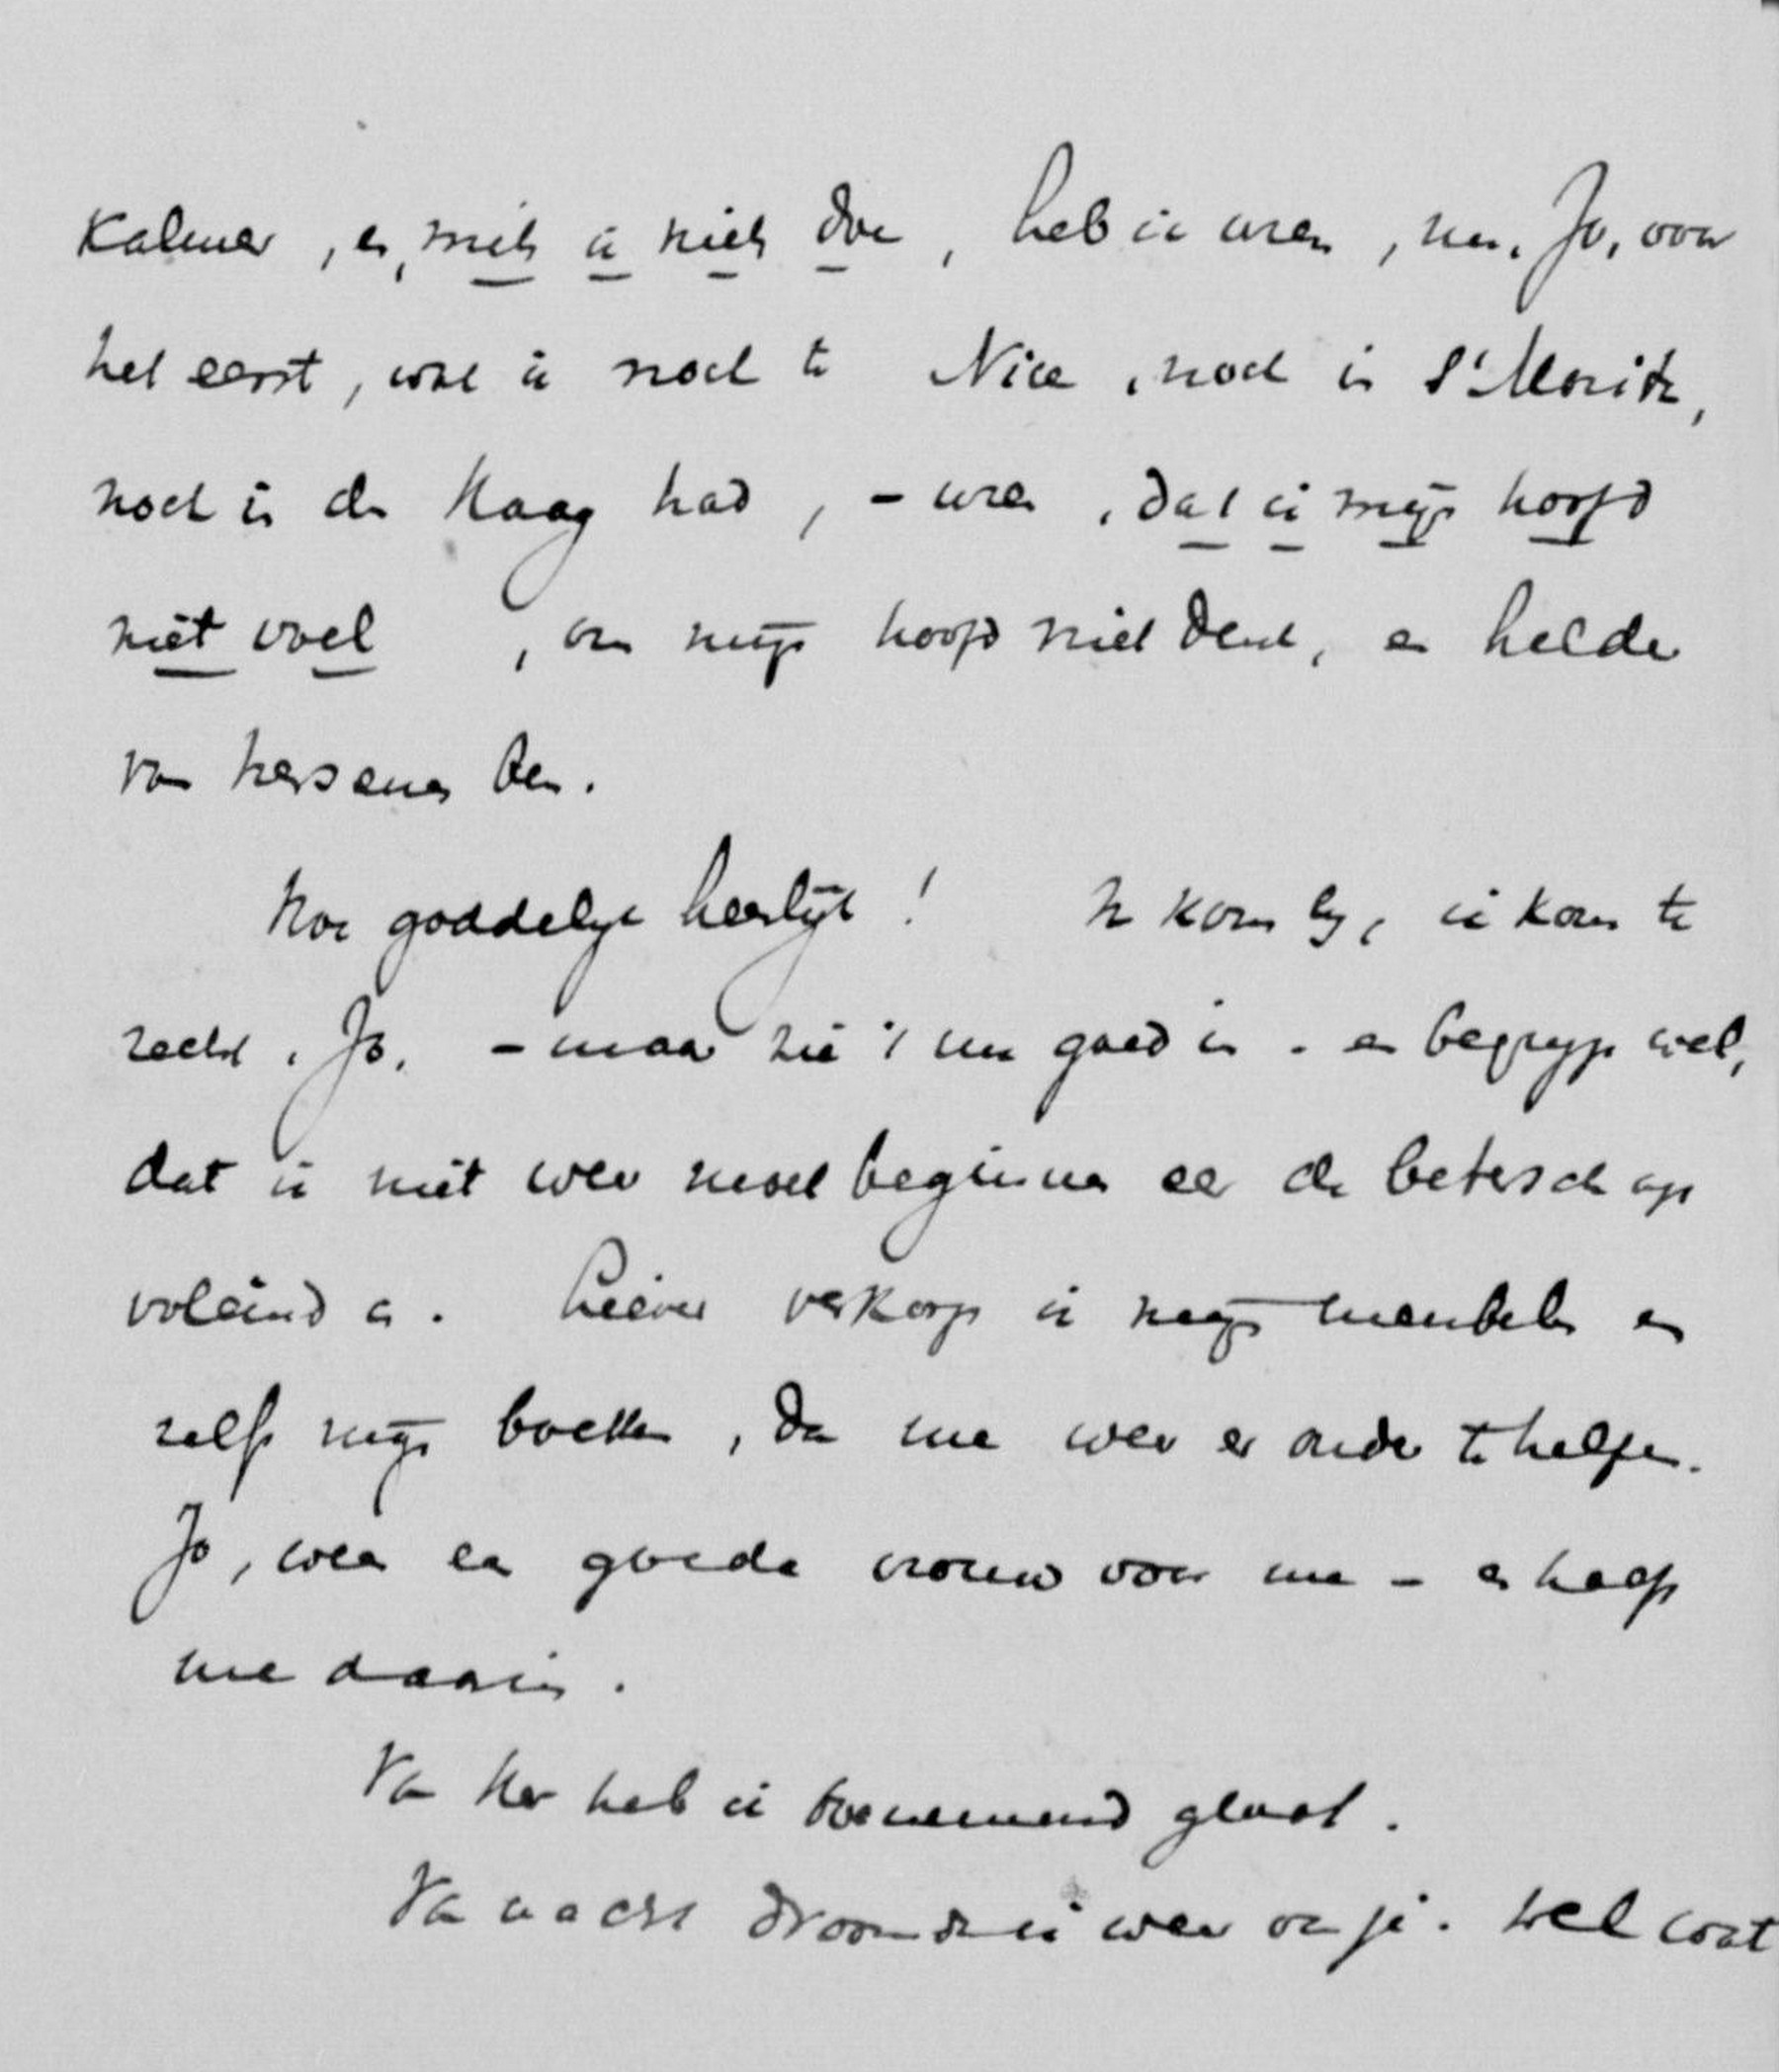 kalmer, en, mits ik niets doe, heb ik uren, nu, Jo, voor
het eerst, wat ik noch te Nice, noch in St Moritz,
noch in den Haag had, – uren, dat ik mijn hoofd
niet voel, om mijn hoofd niet denk, en helder
van hersenen ben.
Hoe goddelijk heerlijk! Ik kom bij, ik kom te
recht, Jo, – maar zie 't nu goed in – en begrijp wel,
dat ik niet weer moet beginnen eer de beterschap
voleind is. Liever verkoop ik mijn meubelen en
zelfs mijn boeken, dan me weer er onder te helpen.
Jo, wees een goede vrouw voor me – en help
me daarin.
Van Her heb ik toenemend gloot.
Van nacht droomde ik weer van je. Wel wat